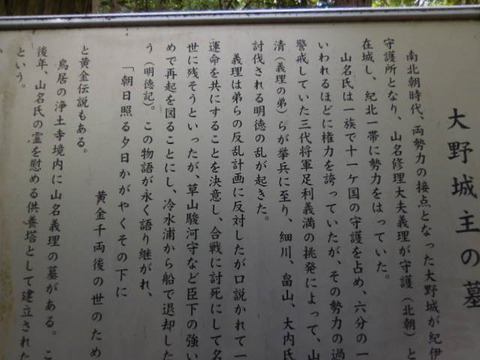 大野城主の墓
南北朝時代、両勢力の接点となった大野城が紀伊
守護所となり、山名修理大夫義理が守護（北朝）と
在城し、紀北一帯に勢力をはっていた。
山名氏は一族で十一ヶ国の守護を占め、六分の一
いわれるほどに権力を誇っていたが、その勢力の過
警戒していた三代将軍足利義満の挑発によって、山
清（義理の弟）らが挙兵に至り、細川、畠山、大内氏
討伐される明徳の乱が起きた。
義理は弟らの反乱計画に反対したが口説かれて一
運命を共にすることを決意し、合戦に討死にして名
世に残そうといったが、草山駿河守など臣下の強い
めで再起を図ることにし、冷水浦から船で退却した
う（明徳記）。この物語が永く語り継がれ、
「朝日照る夕日かがやくその下に
黄金千両後の世のため
と黄金伝説もある。
鳥居の浄土寺境内に山名義理の墓がある。こ
後年、山名氏の霊を慰める供養塔として建立された
という。